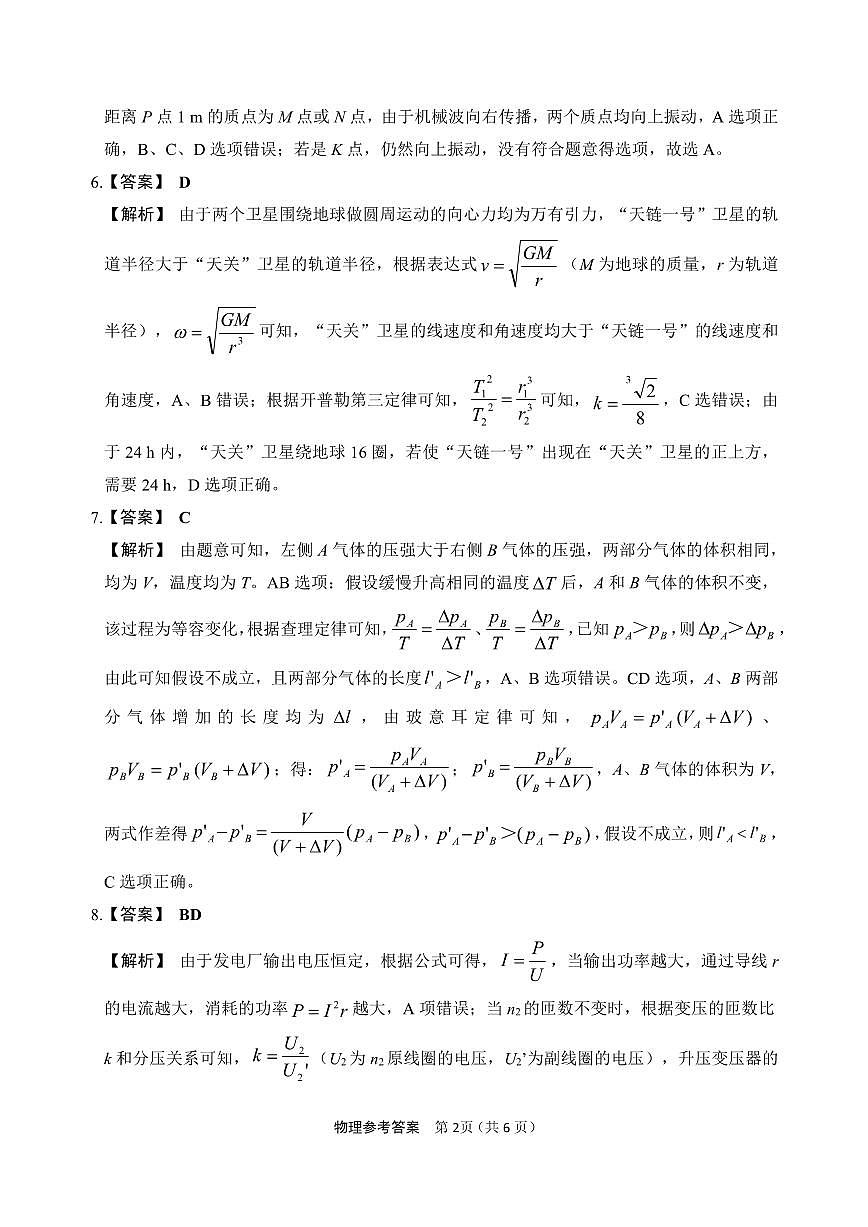 距离 P 点 1 m 的质点为 M 点或 N 点，由于机械波向右传播，两个质点均向上振动，A 选项正
确，B、C、D 选项错误；若是 K 点，仍然向上振动，没有符合题意得选项，故选 A。
6.【答案】 D
【解析】 由于两个卫星围绕地球做圆周运动的向心力均为万有引力，“天链一号”卫星的轨
道半径大于“天关”卫星的轨道半径，根据表达式 $v=\sqrt{\frac{GM}{r}}$（M 为地球的质量，r 为轨道
半径），$\omega=\sqrt{\frac{GM}{r^3}}$ 可知，“天关”卫星的线速度和角速度均大于“天链一号”的线速度和
角速度，A、B 错误；根据开普勒第三定律可知，$\frac{T_1^2}{T_2^2}=\frac{r_1^3}{r_2^3}$ 可知，$k=\frac{\sqrt[3]{2}}{8}$，C 选错误；由
于 24 h 内，“天关”卫星绕地球 16 圈，若使“天链一号”出现在“天关”卫星的正上方，
需要 24 h，D 选项正确。
7.【答案】 C
【解析】 由题意可知，左侧 A 气体的压强大于右侧 B 气体的压强，两部分气体的体积相同，
均为 V，温度均为 T。AB 选项：假设缓慢升高相同的温度 ΔT 后，A 和 B 气体的体积不变，
该过程为等容变化，根据查理定律可知，$\frac{p_A}{T}=\frac{\Delta p_A}{\Delta T}$、$\frac{p_B}{T}=\frac{\Delta p_B}{\Delta T}$，已知 $p_A>p_B$，则 $\Delta p_A>\Delta p_B$，
由此可知假设不成立，且两部分气体的长度 $l'_A>l'_B$，A、B 选项错误。CD 选项，A、B 两部
分气体增加的长度均为 Δl，由玻意耳定律可知，$p_AV_A=p'_A(V_A+\Delta V)$、
$p_BV_B=p'_B(V_B+\Delta V)$；得：$p'_A=\frac{p_AV_A}{(V_A+\Delta V)}$；$p'_B=\frac{p_BV_B}{(V_B+\Delta V)}$，A、B 气体的体积为 V，
两式作差得 $p'_A-p'_B=\frac{V}{(V+\Delta V)}(p_A-p_B)$，$p'_A-p'_B>(p_A-p_B)$，假设不成立，则 $l'_A<l'_B$，
C 选项正确。
8.【答案】 BD
【解析】 由于发电厂输出电压恒定，根据公式可得，$I=\frac{P}{U}$，当输出功率越大，通过导线 r
的电流越大，消耗的功率 $P=I^2r$ 越大，A 项错误；当 n₂ 的匝数不变时，根据变压的匝数比
k 和分压关系可知，$k=\frac{U_2}{U_2'}$（U₂ 为 n₂ 原线圈的电压，U₂’为副线圈的电压），升压变压器的
物理参考答案 第 2页（共 6 页）